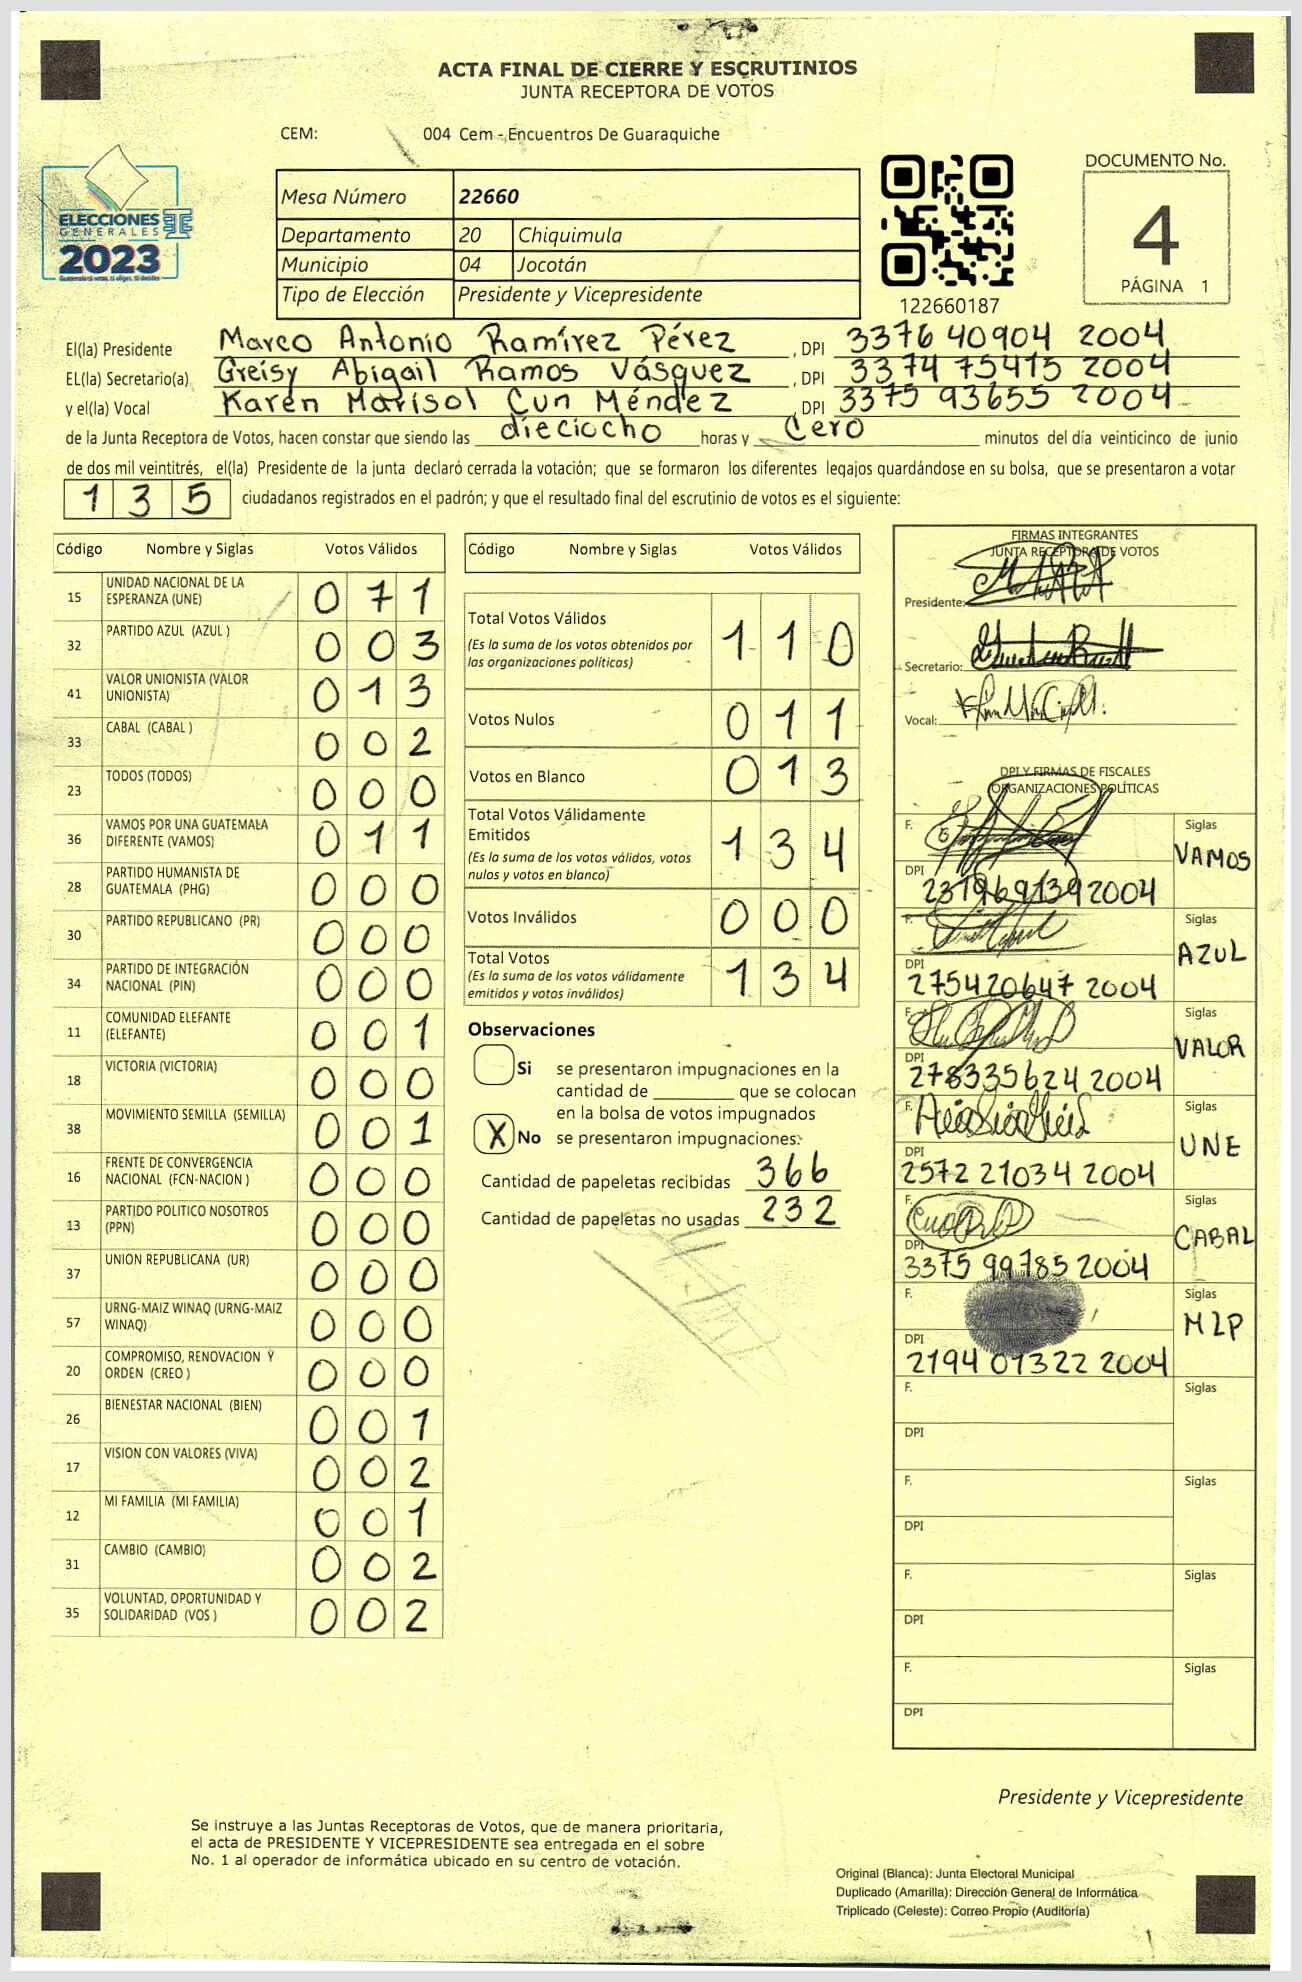 ACTA FINAL DE CIERRE Y ESCRUTINIOS
JUNTA RECEPTORA DE VOTOS
CEM: 004 Cem - Encuentros De Guaraquiche
ELECCIONES
GENERALES
2023
Mesa Número 22660
Departamento 20 Chiquimula
Municipio 04 Jocotán
Tipo de Elección Presidente y Vicepresidente
122660187
DOCUMENTO No.
4
PÁGINA 1
El(la) Presidente Marco Antonio Ramírez Pérez , DPI 3376 40904 2004
EL(la) Secretario(a) Greisy Abigail Ramos Vásquez , DPI 3374 75415 2004
y el(la) Vocal Karen Marisol Cun Méndez , DPI 3375 93655 2004
de la Junta Receptora de Votos, hacen constar que siendo las dieciocho horas y Cero minutos del día veinticinco de junio
de dos mil veintitrés, el(la) Presidente de la junta declaró cerrada la votación; que se formaron los diferentes legajos quardándose en su bolsa, que se presentaron a votar
135 ciudadanos registrados en el padrón; y que el resultado final del escrutinio de votos es el siguiente:
Código Nombre y Siglas Votos Válidos
15 UNIDAD NACIONAL DE LA ESPERANZA (UNE) 071
32 PARTIDO AZUL (AZUL ) 003
41 VALOR UNIONISTA (VALOR UNIONISTA) 013
33 CABAL (CABAL ) 002
23 TODOS (TODOS) 000
36 VAMOS POR UNA GUATEMALA DIFERENTE (VAMOS) 011
28 PARTIDO HUMANISTA DE GUATEMALA (PHG) 000
30 PARTIDO REPUBLICANO (PR) 000
34 PARTIDO DE INTEGRACIÓN NACIONAL (PIN) 000
11 COMUNIDAD ELEFANTE (ELEFANTE) 001
18 VICTORIA (VICTORIA) 000
38 MOVIMIENTO SEMILLA (SEMILLA) 001
16 FRENTE DE CONVERGENCIA NACIONAL (FCN-NACION ) 000
13 PARTIDO POLITICO NOSOTROS (PPN) 000
37 UNION REPUBLICANA (UR) 000
57 URNG-MAIZ WINAQ (URNG-MAIZ WINAQ) 000
20 COMPROMISO, RENOVACION Y ORDEN (CREO ) 000
26 BIENESTAR NACIONAL (BIEN) 001
17 VISION CON VALORES (VIVA) 002
12 MI FAMILIA (MI FAMILIA) 001
31 CAMBIO (CAMBIO) 002
35 VOLUNTAD, OPORTUNIDAD Y SOLIDARIDAD (VOS ) 002
Código Nombre y Siglas Votos Válidos
Total Votos Válidos 110
(Es la suma de los votos obtenidos por las organizaciones políticas)
Votos Nulos 011
Votos en Blanco 013
Total Votos Válidamente Emitidos 134
(Es la suma de los votos válidos, votos nulos y votos en blanco)
Votos Inválidos 000
Total Votos 134
(Es la suma de los votos válidamente emitidos y votos inválidos)
Observaciones
Si se presentaron impugnaciones en la
cantidad de ________ que se colocan
en la bolsa de votos impugnados
X No se presentaron impugnaciones.
Cantidad de papeletas recibidas 366
Cantidad de papeletas no usadas 232
FIRMAS INTEGRANTES
JUNTA RECEPTORA DE VOTOS
Presidente:
Secretario:
Vocal:
DPI Y FIRMAS DE FISCALES
ORGANIZACIONES POLÍTICAS
F. Siglas VAMOS
DPI 2319691392004
F. Siglas AZUL
DPI 275420647 2004
F. Siglas VALOR
DPI 278335624 2004
F. Siglas UNE
DPI 2572 21034 2004
F. Siglas CABAL
DPI 3375 99785 2004
F. Siglas MLP
DPI 2194 01322 2004
F. Siglas
DPI
F. Siglas
DPI
F. Siglas
DPI
F. Siglas
DPI
Presidente y Vicepresidente
Se instruye a las Juntas Receptoras de Votos, que de manera prioritaria,
el acta de PRESIDENTE Y VICEPRESIDENTE sea entregada en el sobre
No. 1 al operador de informática ubicado en su centro de votación.
Original (Blanca): Junta Electoral Municipal
Duplicado (Amarilla): Dirección General de Informática
Triplicado (Celeste): Correo Propio (Auditoría)